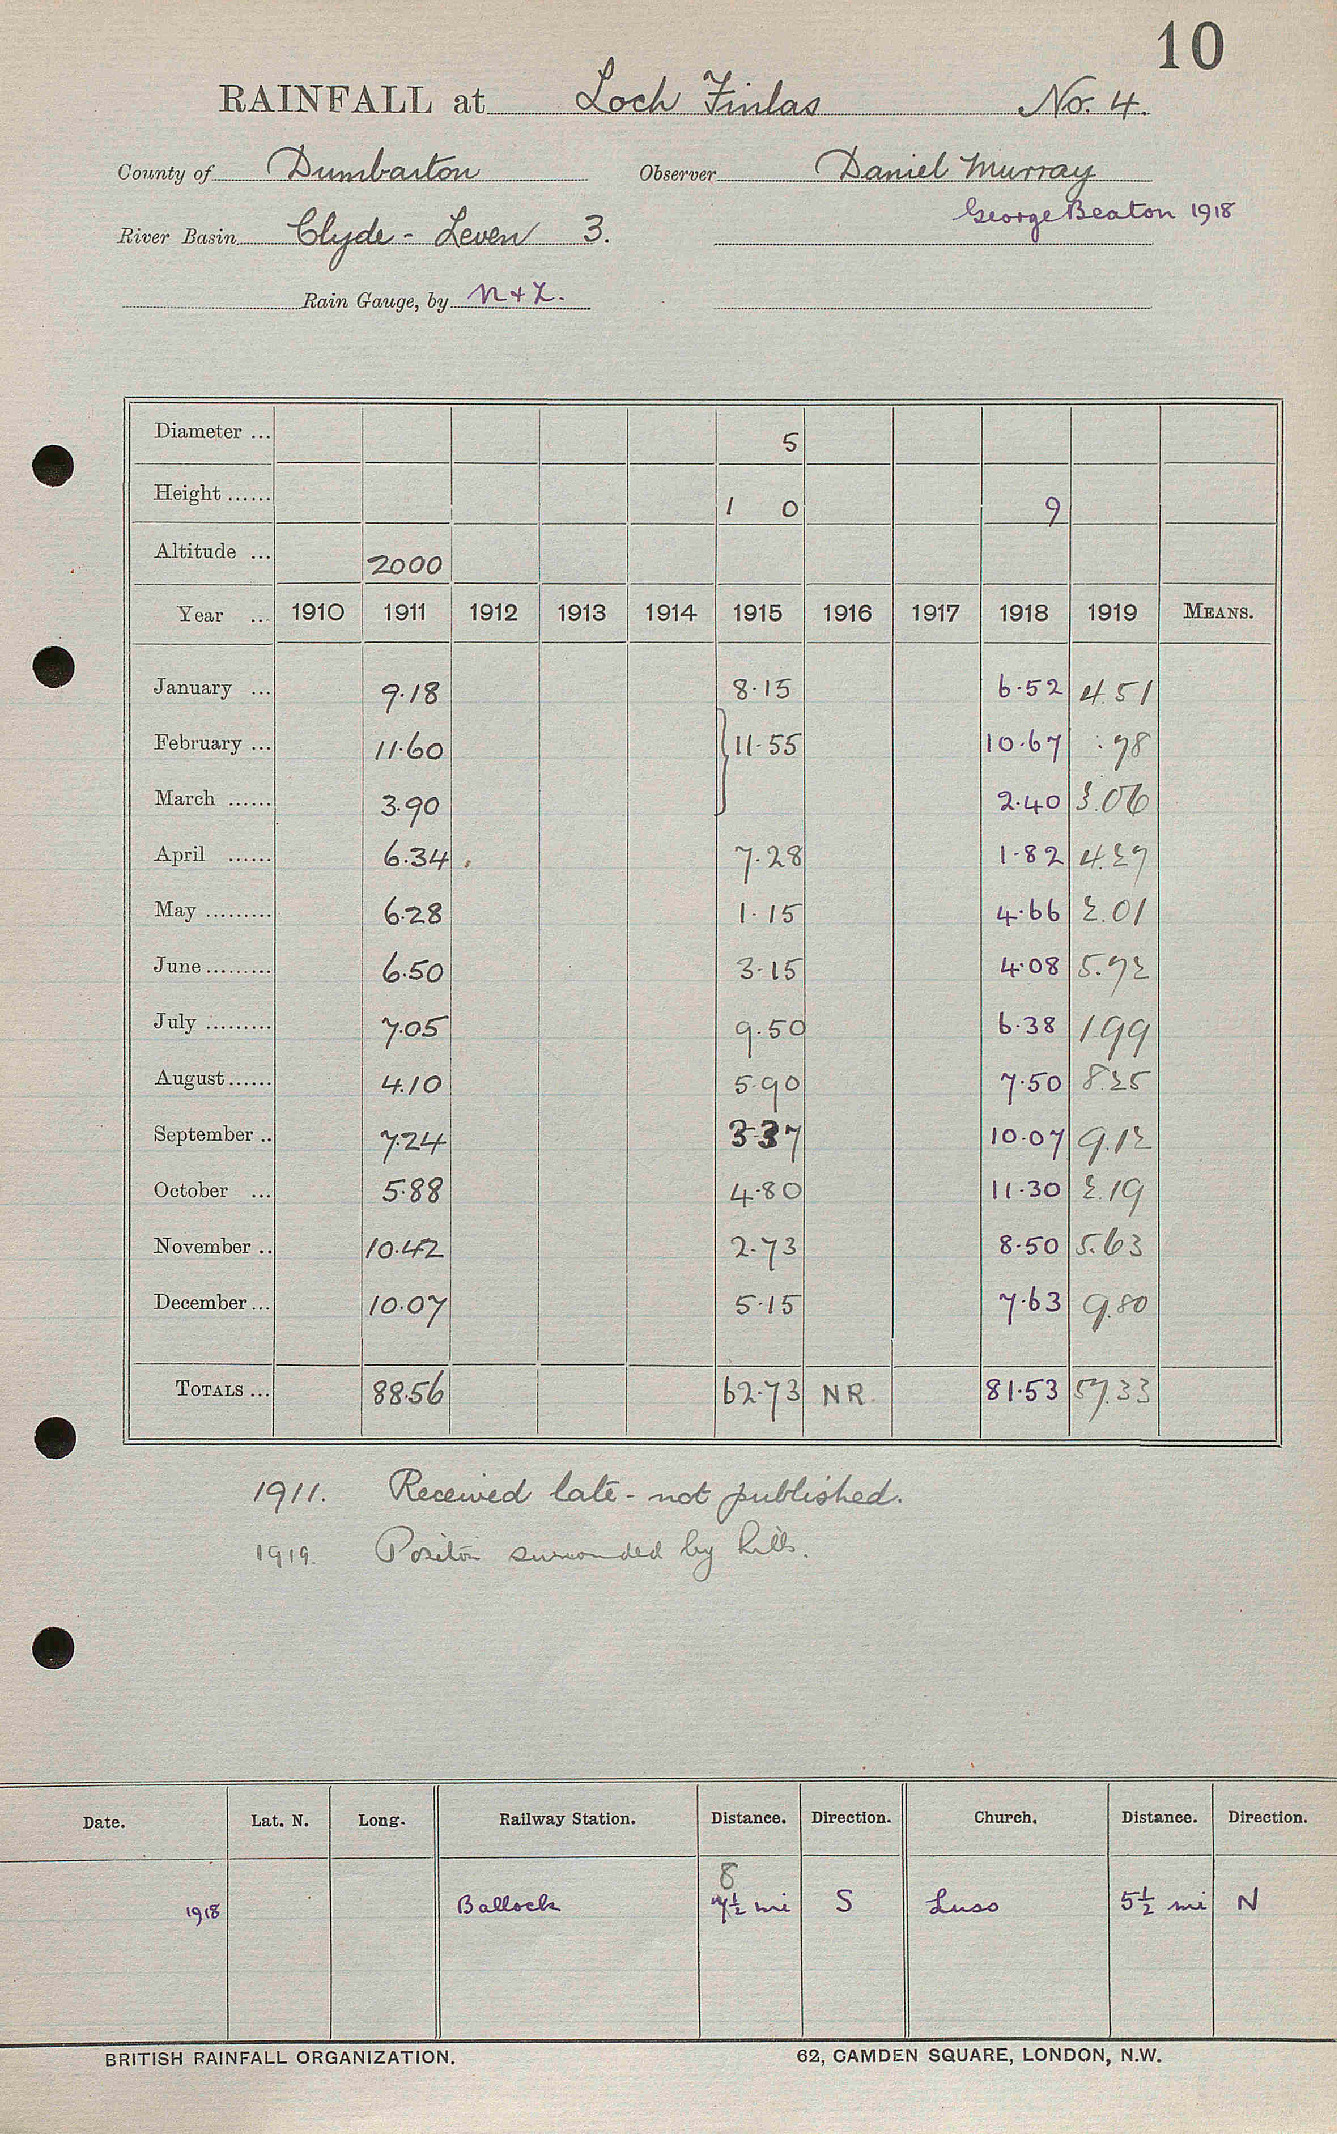 10
RAINFALL at Loch Finlas No. 4.
County of Dumbarton Observer Daniel Murray
George Beaton 1918
River Basin Clyde - Leven 3.
Rain Gauge, by N + Z.
Diameter ... 5
Height ...... 1 0 9
Altitude ... 2000
Year ... 1910 1911 1912 1913 1914 1915 1916 1917 1918 1919 MEANS.
January ... 9.18 8.15 6.52 4.51
February ... 11.60 11.55 10.67 .78
March ...... 3.90 2.40 3.06
April ...... 6.34 7.28 1.82 4.27
May ......... 6.28 1.15 4.66 2.01
June ......... 6.50 3.15 4.08 5.72
July ......... 7.05 9.50 6.38 1 99
August ...... 4.10 5.90 7.50 8.25
September .. 7.24 3.37 10.07 9.12
October ... 5.88 4.80 11.30 2.19
November .. 10.42 2.73 8.50 5.63
December ... 10.07 5.15 7.63 9.80
TOTALS ... 88.56 62.73 NR. 81.53 57.33
1911. Received late - not published.
1919. Position surrounded by hills.
Date. Lat. N. Long. Railway Station. Distance. Direction. Church. Distance. Direction.
8
1918 Balloch 7½ mi S Luss 5½ mi N
BRITISH RAINFALL ORGANIZATION. 62, CAMDEN SQUARE, LONDON, N.W.